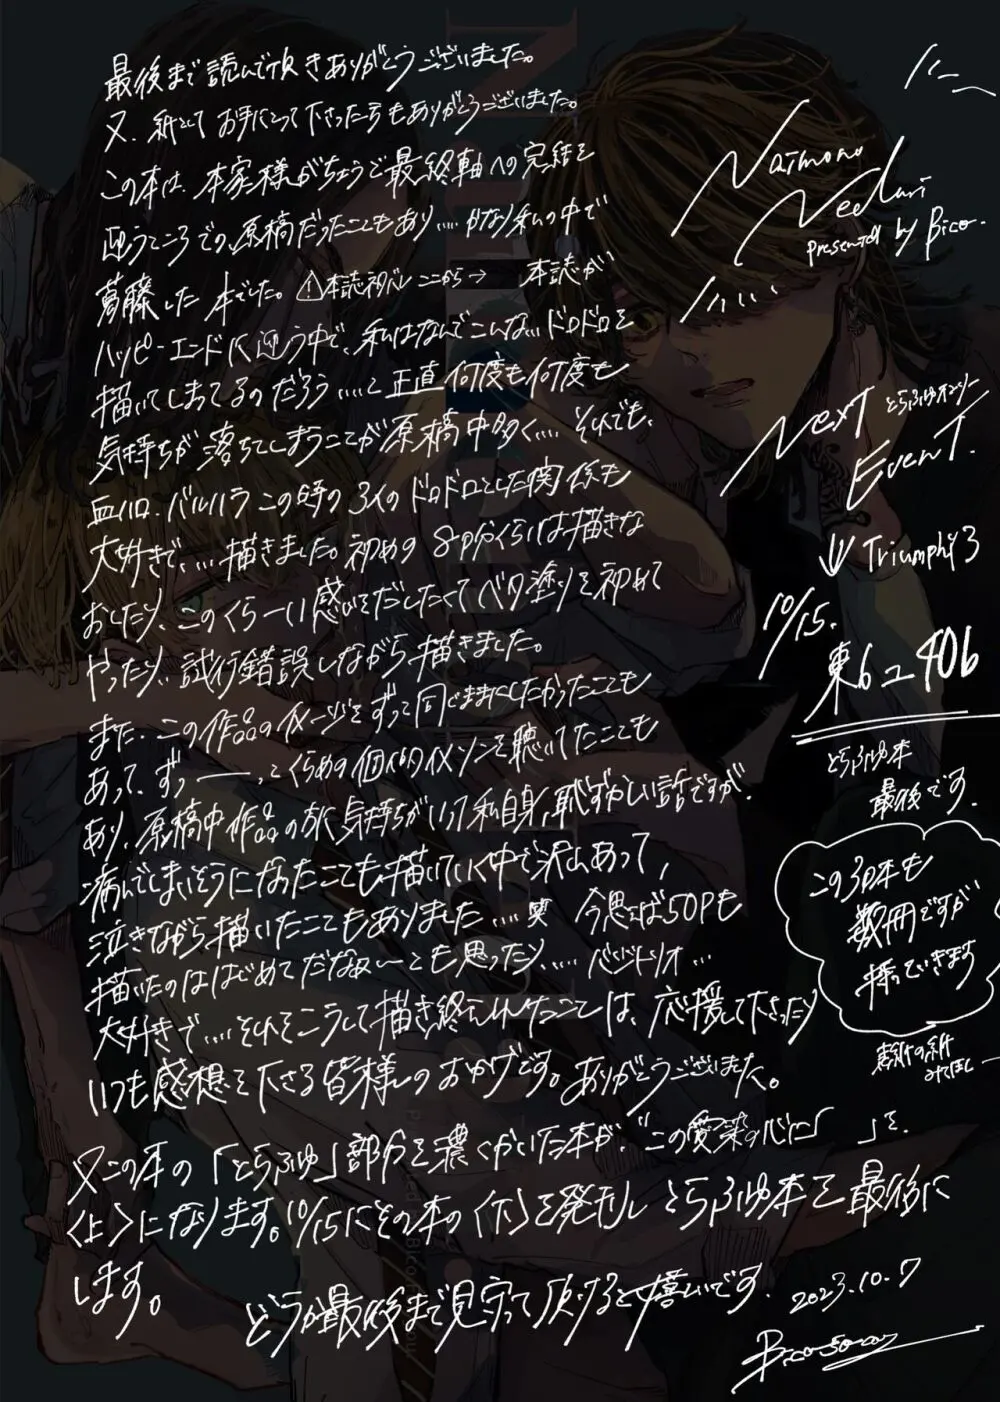 最後まで読んで頂きありがとうございました。
又、紙としてお手にとって下さった方もありがとうございました。
この本は、本家様がちょうど最終軸への完結を
迎うところでの、原稿だったこともあり.... かなり私の中で
葛藤した本でした。⚠本誌ネタバレここから→ 本誌が
ハッピーエンドに迎う中で、私はなんでこんな...ドロドロを
描いてしまってるのだろう.....と正直何度も何度も
気持ちが落ちてしまうことが原稿中多く.... それでも、
血ハロ、バルハラこの時の3人のドロドロとした関係も
大好きで、...描きました。初めの8P分くらいは描きな
おしたり、このくらーい感じをだしたくてベタ塗りを初めて
やったり、試行錯誤しながら描きました。
また、この作品のイメージをずっと同じままにしたかったことも
あって、ずっ――っとくらめの個人的イメソンを聴いてたことも
あり、原稿中作品の方に気持ちがいって私自身、恥ずかしい話ですが、
病んでしまいそうになったことも描いていく中で沢山あって、
泣きながら描いたこともありました....笑 今思えば50Pも
描いたのははじめてだなぁ〜とも思ったり.....
大好きで....それをこうして描き終えられたことは、応援して下さったり
いつも感想を下さる皆様のおかげです。ありがとうございました。
又この本の「とらふゆ」部分を濃くかいた本が、"この愛染の心に「 」を、
〈上〉になります。10/15にその本の〈下〉を発刊しとらふゆ本を最後に
します。
どうか最後まで見守って頂けると嬉しいです.
2023.10.7
Naimono
Nedari
presented by Bico.
Next とらふゆオンリー
Event.
↓ Triumphy 3
10/15.
東6ユ40b
とらふゆ本
最後です.
この3D本も
数冊ですが
持っていきます
表紙の紙
みてほしー